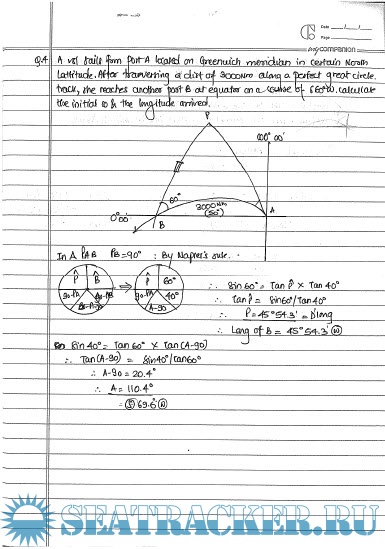 Date
Page
mycompanion
Q.4 A vsl sails form Port A located on Greenwich meridian in certain North
Lattitude. After tranversing a dist of 3000NM along a perfect great circle
track, she reaches another port B at equator on a course of S60°W. calculate
the initial co & the longitude arrived.
P
000°00'
60°
3000NM
(50°)
0°00'
B
A
In Δ PAB PB=90° : By Napier's rule.
P̂ B̂
90-PA
P̂ 60°
90-PA 40°
A-90
∴ Sin 60° = Tan P̂ × Tan 40°
∴ Tan P̂ = Sin60°/Tan40°
∴ P = 45°54.3' = D'long
∴ Long of B = 45°54.3' W
Sin 40° = Tan 60° × Tan (A-90)
∴ Tan (A-90) = Sin 40°/tan60°
∴ A-90 = 20.4°
∴ A = 110.4°
= S 69.6° W
SEATRACKER.RU